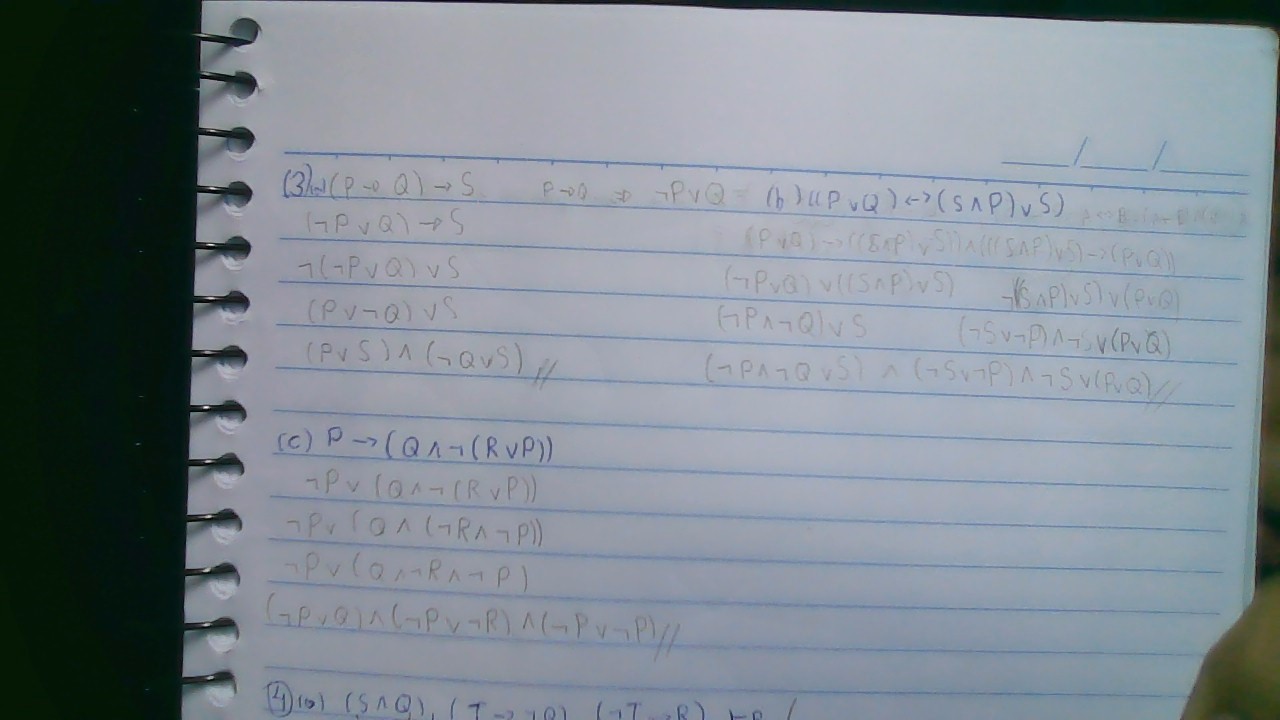 ___/___/___
(3)(a) (P→Q)→S P→Q ⇒ ¬P∨Q (b) ((P∨Q)↔(S∧P)∨S)
(¬P∨Q)→S
(P∨Q)→((S∧P)∨S))∧(((S∧P)∨S)→(P∨Q))
¬(¬P∨Q)∨S
(¬P∨Q)∨((S∧P)∨S) ¬((S∧P)∨S)∨(P∨Q)
(P∨¬Q)∨S
(¬P∧¬Q)∨S (¬S∨¬P)∧¬S∨(P∨Q)
(P∨S)∧(¬Q∨S)//
(¬P∧¬Q∨S) ∧ (¬S∨¬P)∧¬S∨(P∨Q)//
(c) P→(Q∧¬(R∨P))
¬P∨(Q∧¬(R∨P))
¬P∨(Q∧(¬R∧¬P))
¬P∨(Q∧¬R∧¬P)
(¬P∨Q)∧(¬P∨¬R)∧(¬P∨¬P)//
(4)(a) (S∧Q), (T→¬Q), (¬T→R) ⊢R